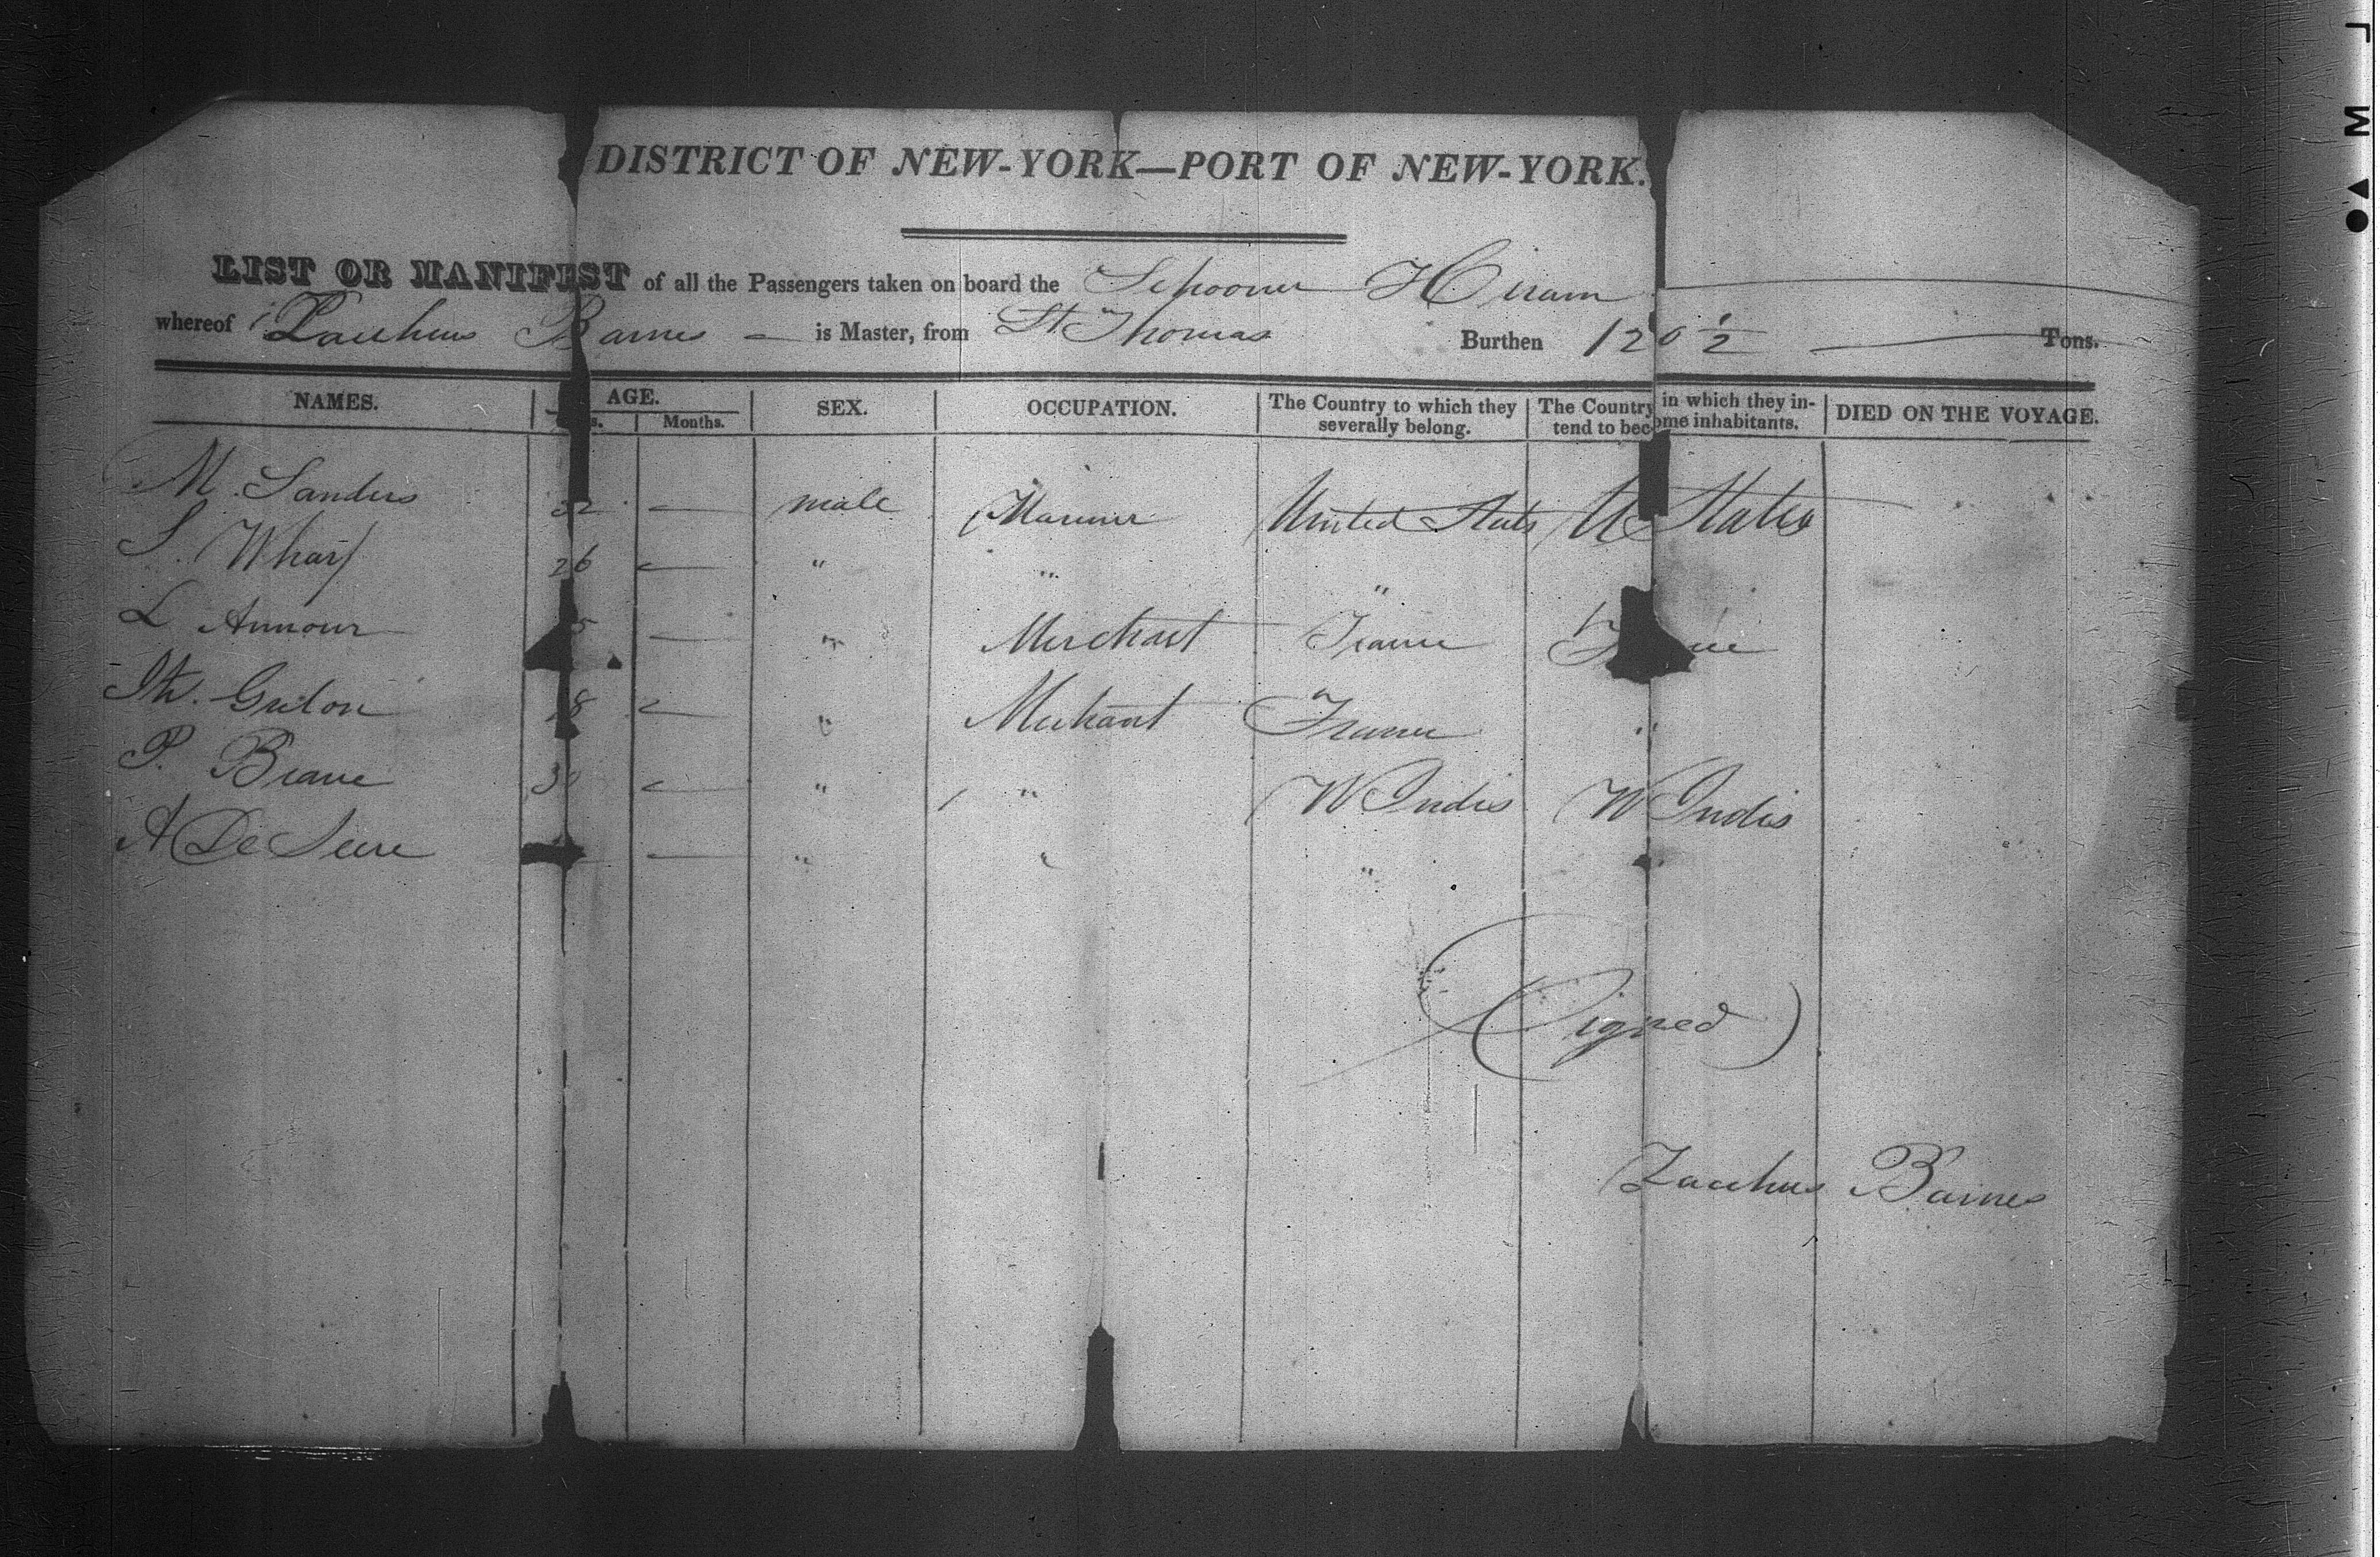 DISTRICT OF NEW-YORK—PORT OF NEW-YORK.
LIST OR MANIFEST of all the Passengers taken on board the Schooner Hiram
whereof Zacchus Barnes is Master, from St Thomas Burthen 120 1/2 Tons.
NAMES. AGE. SEX. OCCUPATION. The Country to which they severally belong. The Country in which they intend to become inhabitants. DIED ON THE VOYAGE.
Months.
M. Sanders 32 — male Mariner United States U States
S. Wharf 26 — " " "
L Armour — " Merchant France
Gridon — " Merchant France "
P. Brave 30 — " " W Indis W Indis
A De — " " " "
(Signed)
Zacchus Barnes
L M